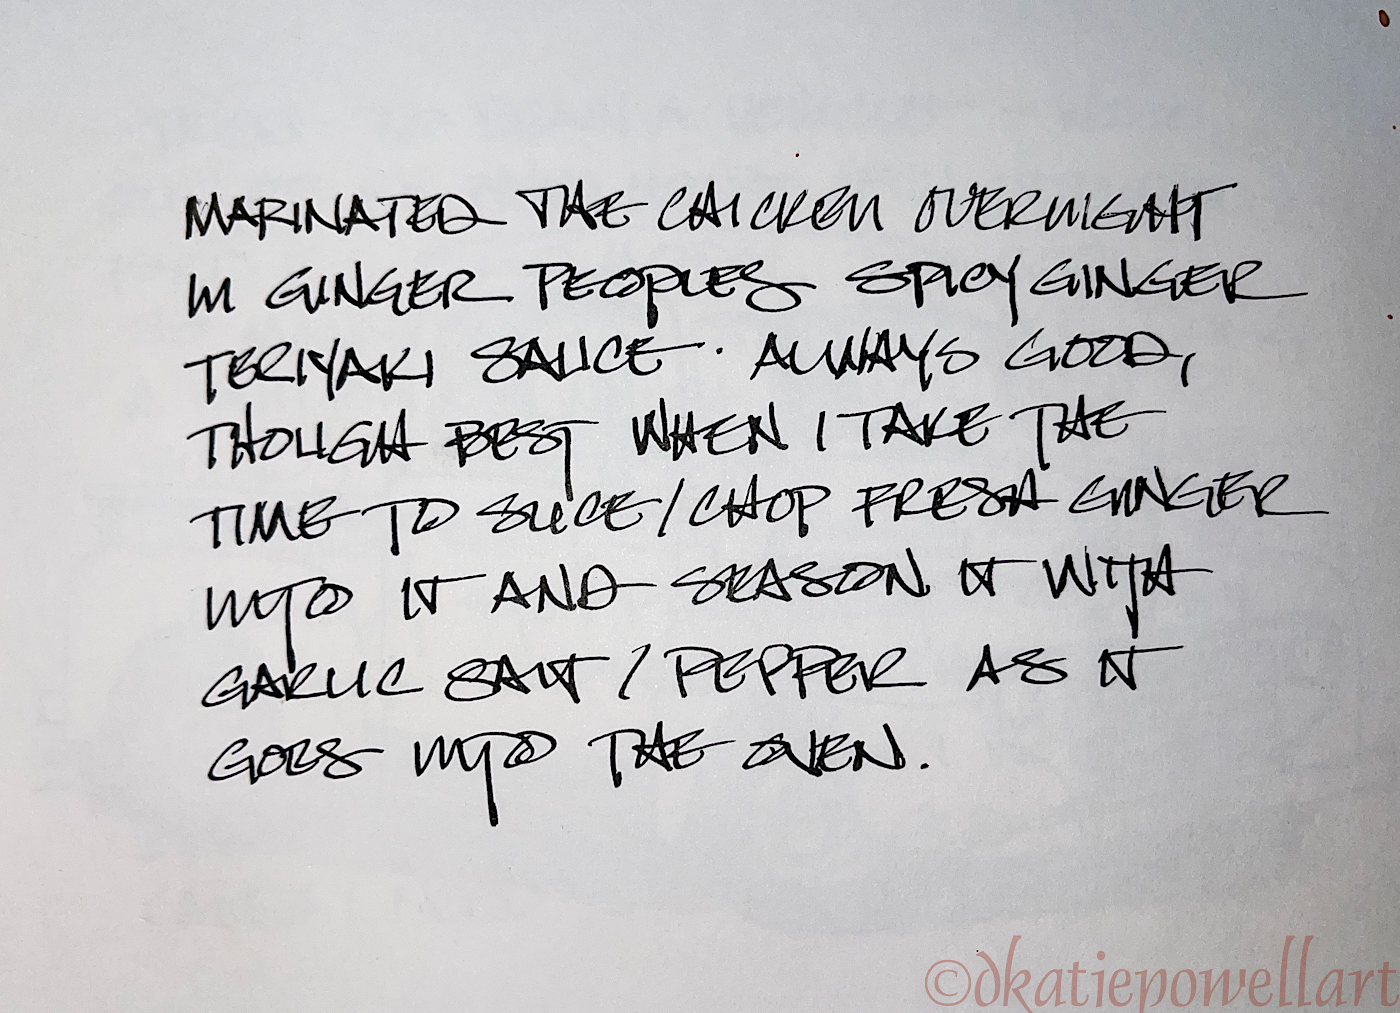 MARINATED THE CHICKEN OVERNIGHT
IN GINGER PEOPLES SPICY GINGER
TERIYAKI SAUCE. ALWAYS GOOD,
THOUGH BEST WHEN I TAKE THE
TIME TO SLICE/CHOP FRESH GINGER
INTO IT AND SEASON IT WITH
GARLIC SALT/PEPPER AS IT
GOES INTO THE OVEN.
©dkatiepowellart